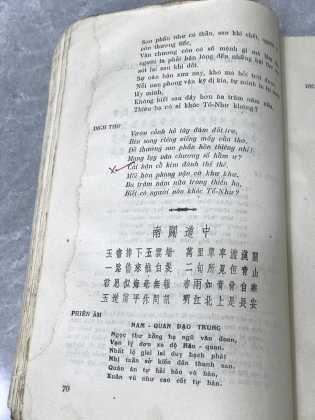 Son phấn như có thần, sau khi chết, người ta
còn thương tiếc,
Văn chương còn có số mệnh gì mà làm cho
người ta phải bận lòng đến những bài thơ còn
sót lại sau khi đốt.
Sự oán hận xưa nay, khó mà hỏi trời được
Nỗi oan phong vận kỳ dị kia, tự mình ta
lấy mình.
Không biết sau đây hơn ba trăm năm nữa,
Thiên hạ có ai khóc Tố-Như không?
DỊCH THƠ
Vườn cảnh hồ tây đám đất trơ,
Bên song riêng viếng mấy vần thơ,
Để thương son phấn hồn thiêng nhỉ!
Mang lụy văn chương số hẩm ư?
Cái hận cổ kim đành thế thế,
Mối hờn phong vận cứ khư khư,
Ba trăm năm nữa trong thiên hạ,
Biết có người nào khóc Tố-Như?
南關道中
玉書捧下五雲端 萬里單車渡漢關
一路皆來惟白髮 二旬所見但青山
君恩似海毫無報 春雨如膏骨自寒
王道蕩平休問 明江北上是長安
PHIÊN ÂM
NAM - QUAN ĐẠO TRUNG
Ngọc thư hồng hạ ngũ vân đoan,
Vạn lý đơn xa độ Hán - quan.
Nhất lộ giai lai duy bạch phát
Nhị tuần sở kiến đản thanh san.
Quân ân tự hải hào vô báo,
Xuân vũ như cao cốt tự hàn.
70